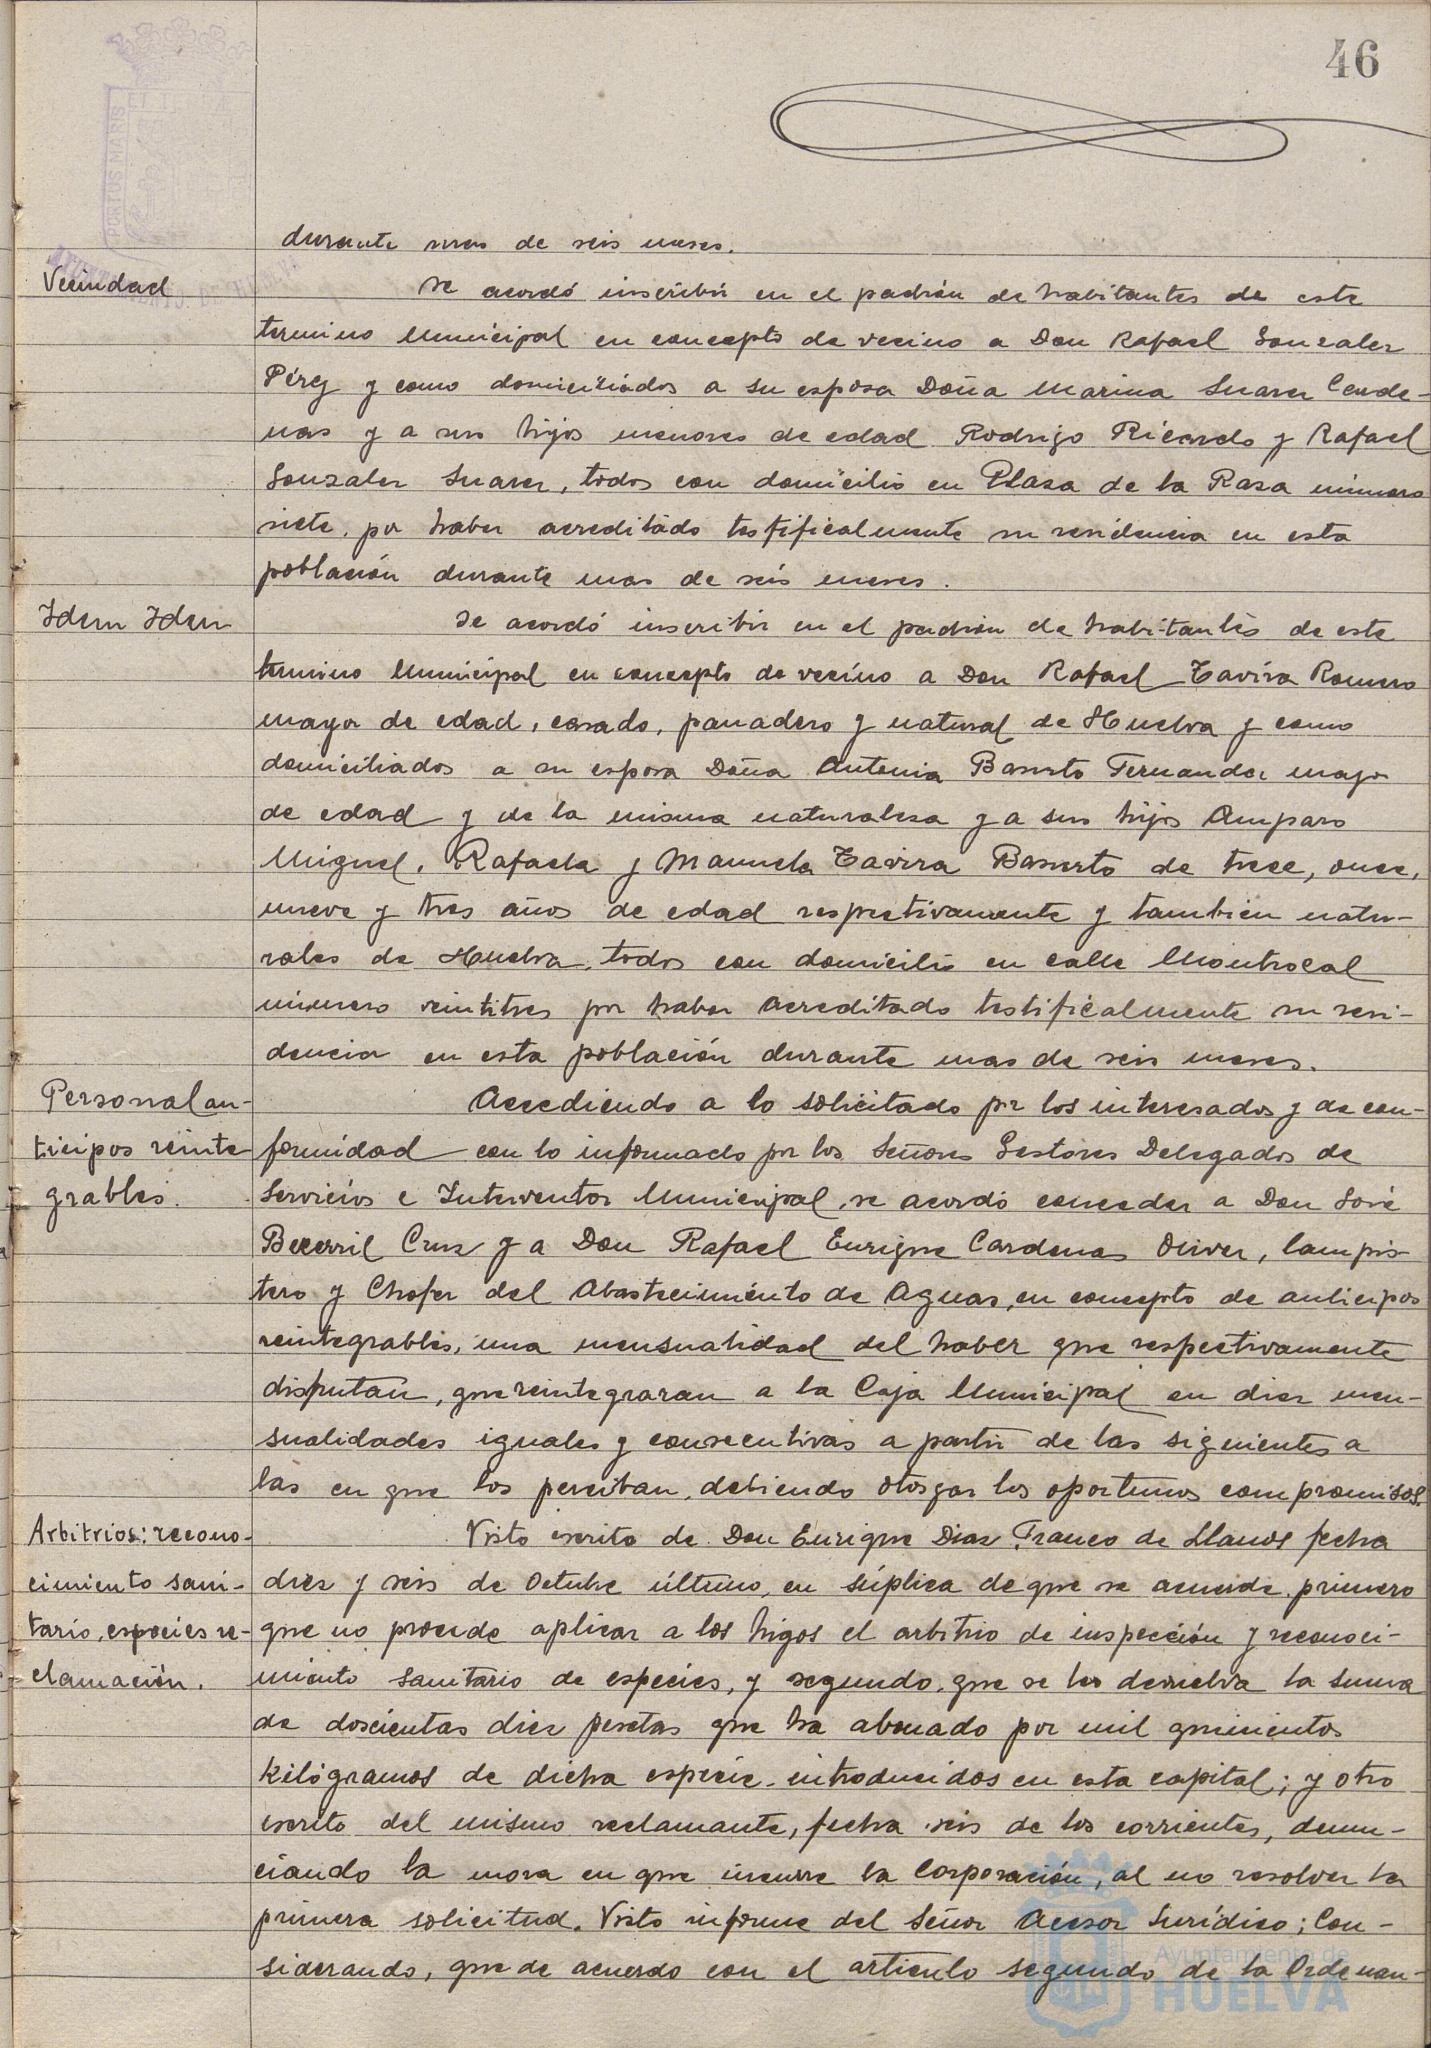 46
PORTUS MARIS
ET TERRÆ
AYUNTAMIENTO DE HUELVA
durante mas de seis meses.
Vecindad
Se acordó inscribir en el padrón de habitantes de este
termino Municipal en concepto de vecino a Don Rafael Gonzalez
Pérez y como domiciliados a su esposa Doña Marina Suarez Carde-
nas y a sus hijos menores de edad Rodrigo Ricardo y Rafael
Gonzalez Suarez, todos con domicilio en Plaza de la Rasa número
siete, por haber acreditado testificalmente su residencia en esta
población durante mas de seis meses.
Idem Idem
Se acordó inscribir en el padrón de habitantes de este
termino Municipal en concepto de vecino a Don Rafael Tavira Romero
mayor de edad, casado, panadero y natural de Huelva y como
domiciliados a su esposa Doña Antonia Basurto Fernandez mayor
de edad y de la misma naturaleza y a sus hijos Amparo
Miguel, Rafaela y Manuela Tavira Basurto de trece, once,
nueve y tres años de edad respectivamente y tambien natu-
rales de Huelva, todos con domicilio en calle Montrocal
número veintitres por haber acreditado testificalmente su resi-
dencia en esta población durante mas de seis meses.
Personal an-
ticipos reinte
grables.
Accediendo a lo solicitado por los interesados y de con-
formidad con lo informado por los Señores Gestores Delegados de
Servicios e Interventor Municipal, se acordó conceder a Don José
Becerril Cruz y a Don Rafael Enrique Cardenas Oliver, lampis-
tero y Chofer del Abastecimiento de Aguas, en concepto de anticipos
reintegrables, una mensualidad del haber que respectivamente
disfrutan, que reintegraran a la Caja Municipal en diez men-
sualidades iguales y consecutivas a partir de las siguientes a
las en que los perciban, debiendo otorgar los oportunos compromisos.
Arbitrios: recono-
cimiento sani-
tario, especies re-
clamación.
Visto escrito de Don Enrique Diaz Franco de Llanos fecha
diez y seis de Octubre último, en súplica de que se acuerde, primero
que no procede aplicar a los higos el arbitrio de inspección y reconoci-
miento sanitario de especies, y segundo, que se les devuelva la suma
de doscientas diez pesetas que ha abonado por mil quinientos
kilógramos de dicha especie introducidos en esta capital; y otro
escrito del mismo reclamante, fecha seis de los corrientes, denun-
ciando la mora en que incurre la Corporación, al no resolver la
primera solicitud. Visto informe del Señor Asesor Jurídico; Con-
siderando, que de acuerdo con el articulo segundo de la Ordenan-
Ayuntamiento de
HUELVA